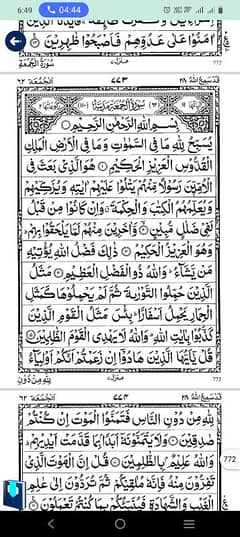 6:49
04:44
اٰمَنُوْا عَلٰى عَدُوِّهِمْ فَاَصْبَحُوْا ظٰهِرِيْنَ
سُوْرَةُ الْجُمُعَةِ
٧٧٢
٦٢ الجمعة ٧٧٣ قد سمع الله ٢٨
بِسْمِ اللّٰهِ الرَّحْمٰنِ الرَّحِيْمِ
يُسَبِّحُ لِلّٰهِ مَا فِى السَّمٰوٰتِ وَمَا فِى الْاَرْضِ الْمَلِكِ
الْقُدُّوْسِ الْعَزِيْزِ الْحَكِيْمِ ۝ هُوَ الَّذِىْ بَعَثَ فِى
الْاُمِّيّٖنَ رَسُوْلًا مِّنْهُمْ يَتْلُوْا عَلَيْهِمْ اٰيٰتِهٖ وَيُزَكِّيْهِمْ
وَيُعَلِّمُهُمُ الْكِتٰبَ وَالْحِكْمَةَ وَاِنْ كَانُوْا مِنْ قَبْلُ
لَفِىْ ضَلٰلٍ مُّبِيْنٍ ۝ وَّاٰخَرِيْنَ مِنْهُمْ لَمَّا يَلْحَقُوْا بِهِمْ
وَهُوَ الْعَزِيْزُ الْحَكِيْمُ ۝ ذٰلِكَ فَضْلُ اللّٰهِ يُؤْتِيْهِ
مَنْ يَّشَآءُ وَاللّٰهُ ذُو الْفَضْلِ الْعَظِيْمِ ۝ مَثَلُ
الَّذِيْنَ حُمِّلُوا التَّوْرٰىةَ ثُمَّ لَمْ يَحْمِلُوْهَا كَمَثَلِ
الْحِمَارِ يَحْمِلُ اَسْفَارًا بِئْسَ مَثَلُ الْقَوْمِ الَّذِيْنَ
كَذَّبُوْا بِاٰيٰتِ اللّٰهِ وَاللّٰهُ لَا يَهْدِى الْقَوْمَ الظّٰلِمِيْنَ ۝
قُلْ يٰٓاَيُّهَا الَّذِيْنَ هَادُوْٓا اِنْ زَعَمْتُمْ اَنَّكُمْ اَوْلِيَآءُ
لِلّٰهِ مِنْ دُوْنِ
٧٧٣
٦٢ الجمعة ٧٧٤ قد سمع الله ٢٨
لِلّٰهِ مِنْ دُوْنِ النَّاسِ فَتَمَنَّوُا الْمَوْتَ اِنْ كُنْتُمْ
صٰدِقِيْنَ ۝ وَلَا يَتَمَنَّوْنَهٗٓ اَبَدًۢا بِمَا قَدَّمَتْ اَيْدِيْهِمْ
وَاللّٰهُ عَلِيْمٌۢ بِالظّٰلِمِيْنَ ۝ قُلْ اِنَّ الْمَوْتَ الَّذِىْ
772
تَفِرُّوْنَ مِنْهُ فَاِنَّهٗ مُلٰقِيْكُمْ ثُمَّ تُرَدُّوْنَ اِلٰى عٰلِمِ
الْغَيْبِ وَالشَّهَادَةِ فَيُنَبِّئُكُمْ بِمَا كُنْتُمْ تَعْمَلُوْنَ